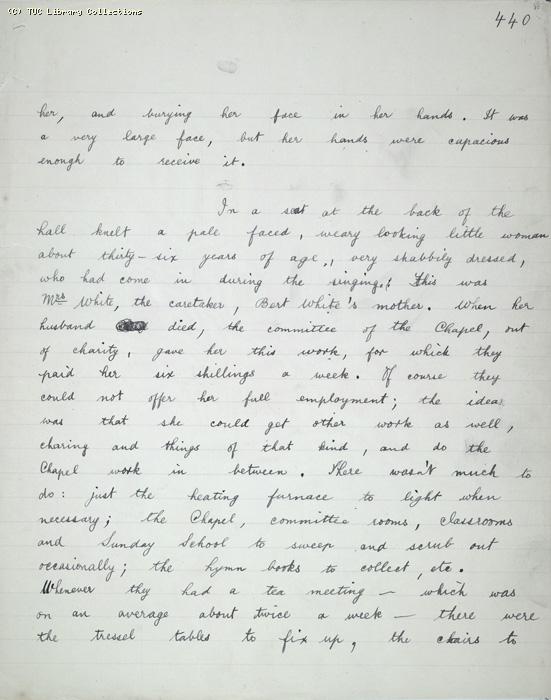 (C) TUC Library Collections
440
her, and burying her face in her hands. It was
a very large face, but her hands were capacious
enough to receive it.
In a seat at the back of the
hall knelt a pale faced, weary looking little woman
about thirty-six years of age, very shabbily dressed,
who had come in during the singing. This was
Mrs White, the caretaker, Bert White's mother. When her
husband died, the committee of the Chapel, out
of charity, gave her this work, for which they
paid her six shillings a week. Of course they
could not offer her full employment; the idea
was that she could get other work as well,
charing and things of that kind, and do the
Chapel work in between. There wasn't much to
do: just the heating furnace to light when
necessary; the Chapel, committee rooms, classrooms
and Sunday School to sweep and scrub out
occasionally; the hymn books to collect, etc.
Whenever they had a tea meeting — which was
on an average about twice a week — there were
the tressel tables to fix up, the chairs to